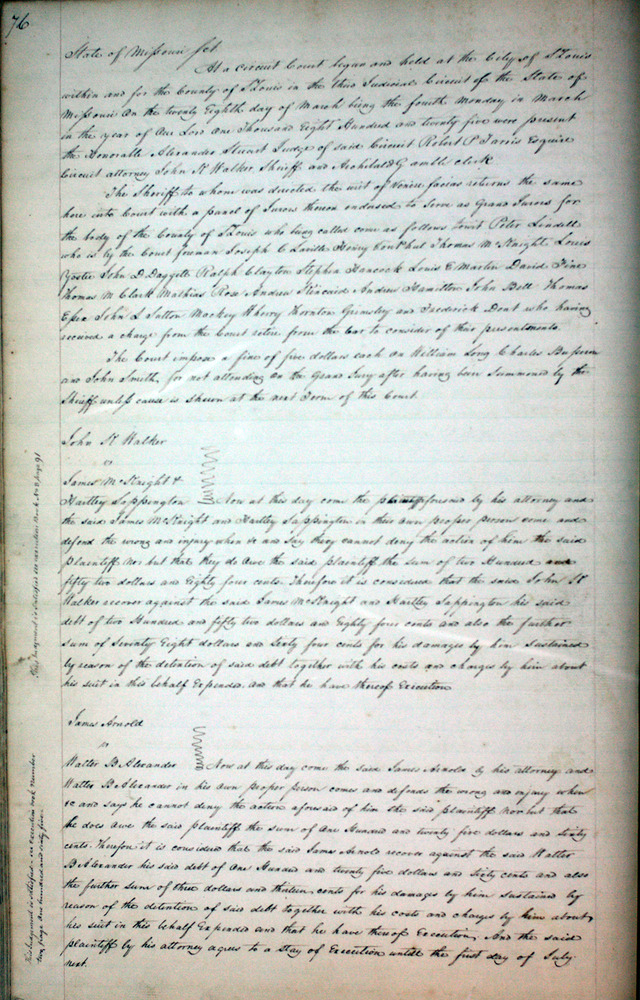 76
State of Missouri Sct.
At a circuit Court began and held at the City of St Louis
within and for the County of St Louis in the third Judicial Circuit of the State of
Missouri on the twenty Eighth day of March being the fourth Monday in March
in the year of our Lord One Thousand Eight Hundred and twenty five were present
the Honorable Alexander Stuart Judge of said Circuit Robert P Farris Esquire
Circuit attorney John K Walker Sheriff and Archibald Gamble clerk
The Sheriff to whom was directed the writ of Venire facias returns the same
here into Court with a panel of Jurors thereon endorsed to serve as Grand Jurors for
the body of the County of St Louis who being called come as follows towit Peter Lindell
who is by the Court foreman Joseph C Laville Henry Thomas McKnight Louis
John D Daggett Ralph Clayton Stephen Hancock Louis E Martin David Fine
Thomas M Clark Mathias Rose Andrew Kincaid Andrew Hamilton John Bell Thomas
Essex John L Sutton Mackey Wherry Thornton Grimsley and Frederick Dent who having
received a charge from the Court retire from the bar to consider of their presentments.
The Court impose a fine of five dollars each on William Long Charles
and John Smith, for not attending on the Grand Jury after having been summoned by the
Sheriff unless cause is shewn at the next Term of this Court.
John K Walker
vs
James McKnight &
Hartley Sappington Now at this day come the plaintiff aforesaid by his attorney and
the said James McKnight and Hartley Sappington in their own proper person come and
defend the wrong and injury when &c and say they cannot deny the action of him the said
plaintiff nor but that they do owe the said plaintiff the sum of two Hundred and
fifty two dollars and Eighty four cents Therefore it is considered that the said John K
Walker recover against the said James McKnight and Hartley Sappington his said
debt of two Hundred and fifty two dollars and Eighty four cents and also the further
sum of Seventy Eight dollars and Sixty four cents for his damages by him sustained
by reason of the detention of said debt together with his costs and charges by him about
his suit in this behalf Expended and that he have thereof Execution
This judgment is satisfied see execution book No 2 page 91
James Arnold
vs
Walter B Alexander Now at this day come the said James Arnold by his attorney and
Walter B Alexander in his own proper person comes and defends the wrong and injury when
&c and says he cannot deny the action aforesaid of him the said plaintiff nor but that
he does owe the said plaintiff the sum of One Hundred and twenty five dollars and sixty
cents. Therefore it is considered that the said James Arnold recover against the said Walter
B Alexander his said debt of One Hundred and twenty five dollars and Sixty cents and also
the further sum of three dollars and thirteen cents for his damages by him sustained by
reason of the detention of said debt together with his costs and charges by him about
his suit in this behalf Expended and that he have thereof Execution, And the said
plaintiff by his attorney agrees to a stay of Execution untill the first day of July
next.
This judgment is satisfied - see execution book number
two, page one hundred and